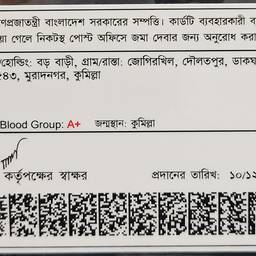 গণপ্রজাতন্ত্রী বাংলাদেশ সরকারের সম্পত্তি। কার্ডটি ব্যবহারকারী ব
গেলে নিকটস্থ পোস্ট অফিসে জমা দেবার জন্য অনুরোধ করা
হোল্ডিং: বড় বাড়ী, গ্রাম/রাস্তা: জোগিরখিল, দৌলতপুর, ডাকঘ
৫৪৩, মুরাদনগর, কুমিল্লা
Blood Group: A+ জন্মস্থান: কুমিল্লা
কর্তৃপক্ষের স্বাক্ষর প্রদানের তারিখ: ১০/১২